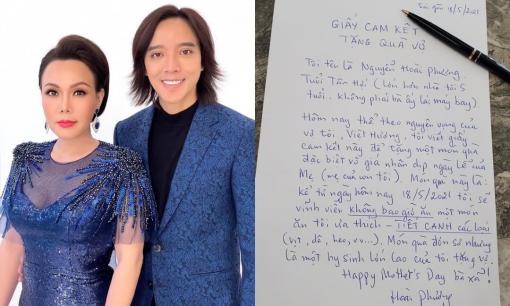 Sài gòn 18/5/2021
GIẤY CAM KẾT
TẶNG QUÀ VỢ
Tôi tên là Nguyễn Hoài Phương.
Tuổi Tân Hợi (Lớn hơn nhà tôi 5
tuổi. Không phải bà ấy lái máy bay).
Hôm nay thể theo nguyện vọng của
vợ tôi, Việt Hương, tôi viết giấy
cam kết này để tặng một món quà
đặc biệt vô giá nhân dịp ngày Lễ của
Mẹ (mẹ của con tôi). Món quà này là:
kể từ ngày hôm nay 18/5/2021 tôi sẽ
vĩnh viễn không bao giờ ăn một món
ăn tôi ưa thích - TIẾT CANH các loại
(vịt, dê, heo, vv...). Món quà đơn sơ nhưng
là một hy sinh lớn lao của tôi tặng vợ.
Happy Mother's Day bà xã!
Hoài Phương